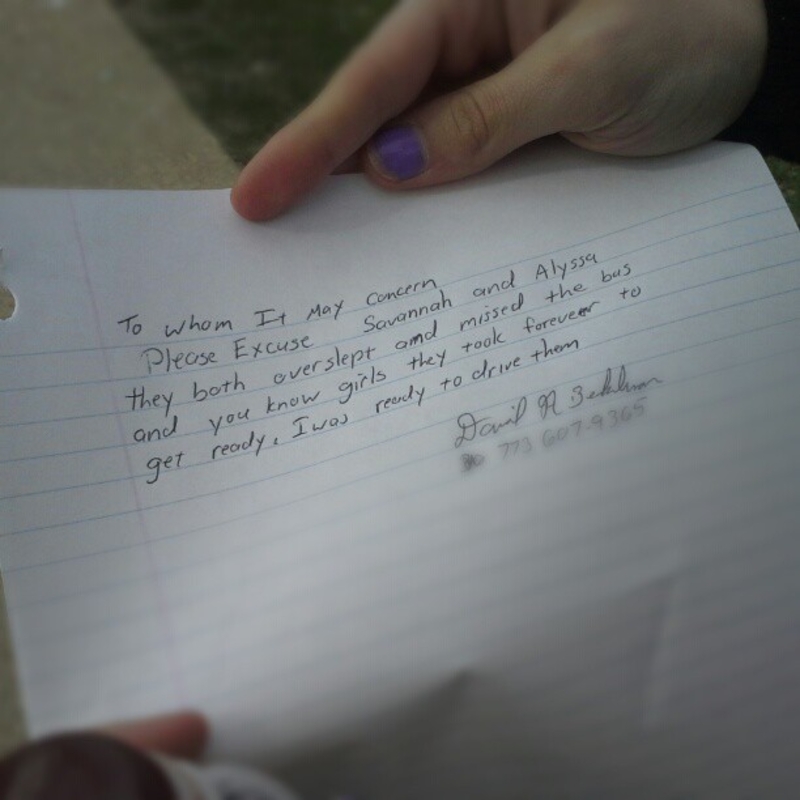 To whom It May Concern
Please Excuse Savannah and Alyssa
they both overslept and missed the bus
and you know girls they took forever to
get ready. I was ready to drive them
David R
773 607-9365